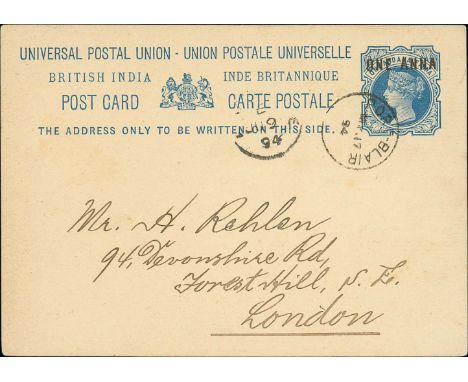 UNIVERSAL POSTAL UNION - UNION POSTALE UNIVERSELLE
BRITISH INDIA INDE BRITANNIQUE
POST CARD CARTE POSTALE
THE ADDRESS ONLY TO BE WRITTEN ON THIS SIDE.
ONE ANNA
-BLAIR
17
94
94
Mr. H. Rehlen
94, Devonshire Rd,
Forest Hill, S. E.
London